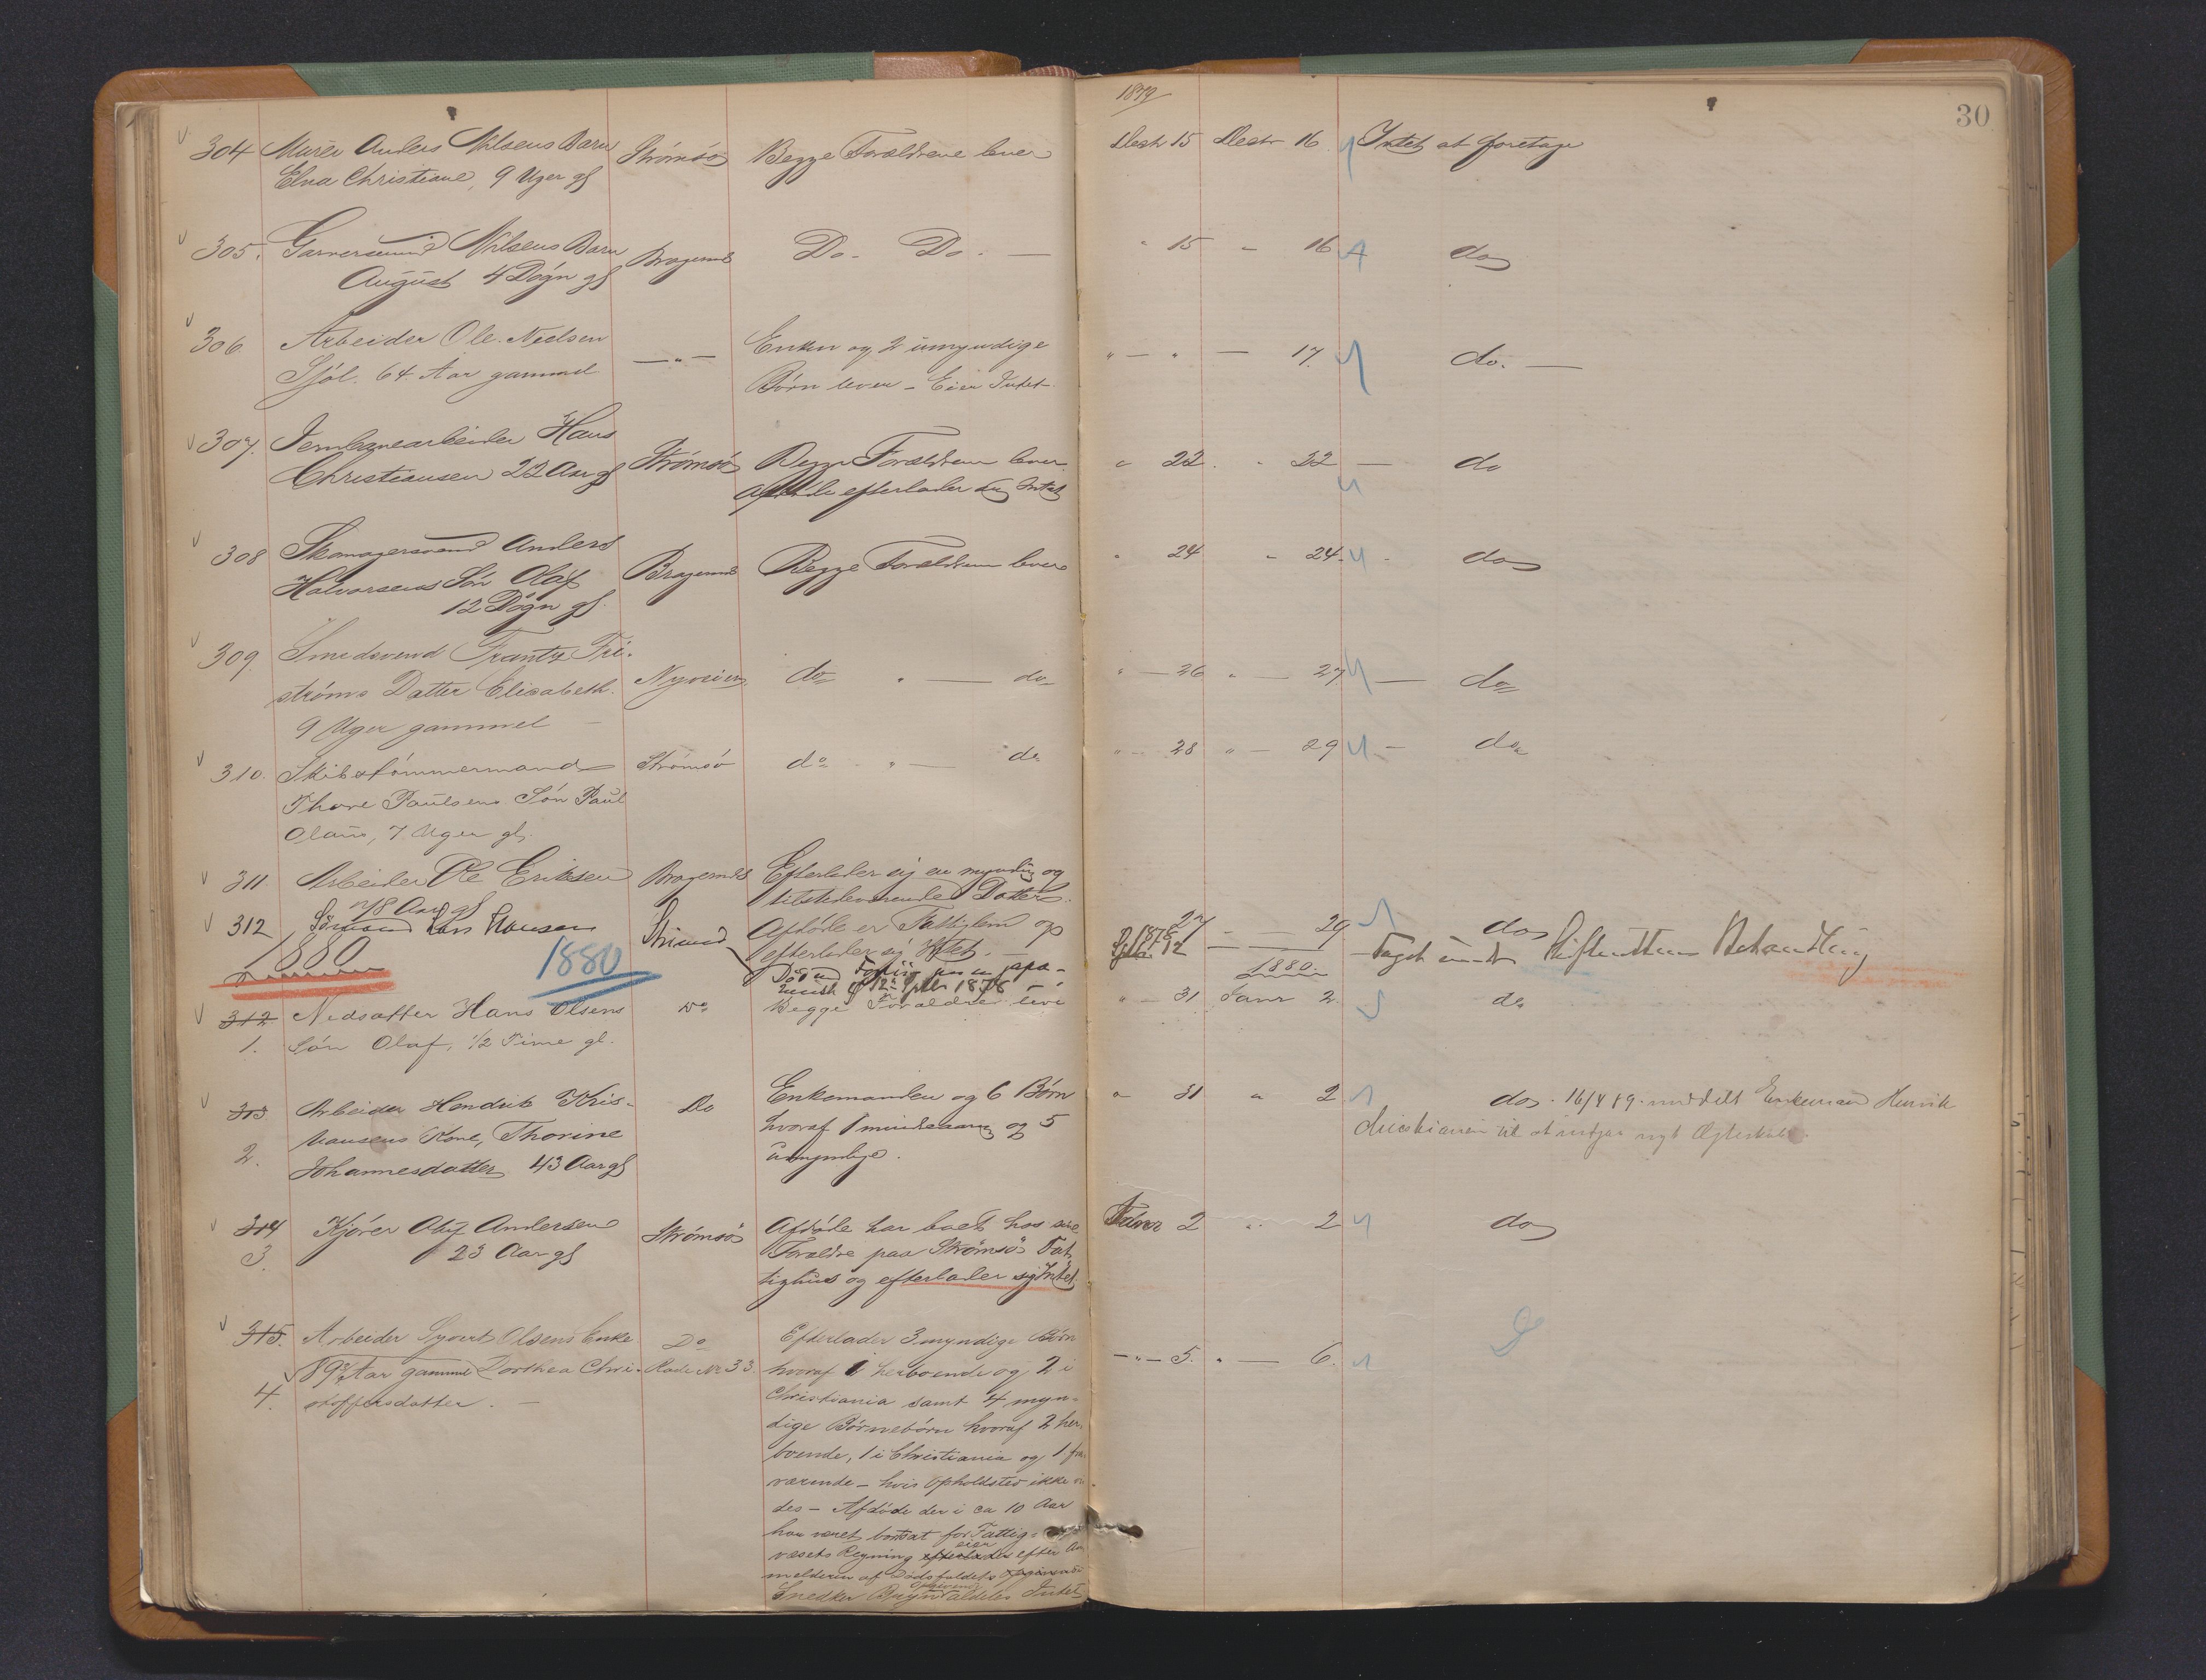 1879
30
304 Murer Anders Nilsens Barn Strömsö Begge Forældrene lever Decbr 15 Decbr 16 Intet at foretage
Elna Christiane, 9 Uger gl
305. Garversvend Nilsens Barn Bragernes Do. Do. — " 15 " 16 do
August 4 Døgn gl
306. Arbeider Ole Nielsen —"— Enken og 2 umyndige " — " — 17. do. —
64 Aar gammel Børn lever – Eier Intet.
307. Jernbanearbeider Hans Strömsö Begge Forældrene lever " 22. " 22 — do
Christiansen 22 Aar gl Afdøde efterlader sig Intet
308 Skomagersvend Anders Bragernes Begge Forældrene lever " 24 " 24. - do
Halvorsens Sön Olaf
12 Døgn gl.
309. Smedsvend Frantz Fri- Nyveien do " — do " — 26 " — 27 — do
ströms Datter Elisabeth.
9 Uger gammel —
310. Skibstömmermand Strömsö do " — do " — 28 " — 29 — do
Thore Paulsens Sön Paul
Olaus, 7 Uger gl.
311. Arbeider Ole Eriksen Bragernes Efterlader sig en myndig og
78 Aar gl tilstedeværende Datter. 27 29 do
312 Sömand Lars Hansen Afdöde er Fattiglem og
efterlader sig Intet. — 12 Taget under Behandling
1880 1880 1880
12 1878
312 Nedsætter Hans Olsens Do Begge Forældre leve " — 31 Janr 2 do
1. Sön Olaf, 1/2 Time gl.
313 Arbeider Hendrik Chris- Do Enkemanden og 6 Børn " 31 " 2 do. 16/4 89 meddelt Enkemand Henrik
2. tiansens Kone, Thorine hvoraf 1 mindreaarig og 5 Christiansen til at indgaa nyt Ægteskab.
Johannesdatter 43 Aar gl umyndige.
314 Kjörer Oluf Andersen Strömsö Afdøde har boet hos sine Janr 2 " 2 do
3. 23 Aar gl Forældre paa Strömsö Fat-
tighus og efterlader sig Intet
315. Arbeider Syvert Olsens Enke Do Efterlader 3 myndige Børn
89 Aar gammel Dorthea Chri- Rode No 33. hvoraf 1 herboende og 2 i —"— 5. " — 6.
4. stoffersdatter. — Christiania samt 4 myn-
dige Børnebörn hvoraf 2 her-
boende, 1 i Christiania og 1 fra-
værende – hvis Opholdsted ikke vi-
des – Afdøde der i ca 10 Aar
har været bortsat for Fattig-
væsets Regning efterlader eier efter An-
melderen af Dødsfaldet opgivende
Snedker opgivende aldeles Intet